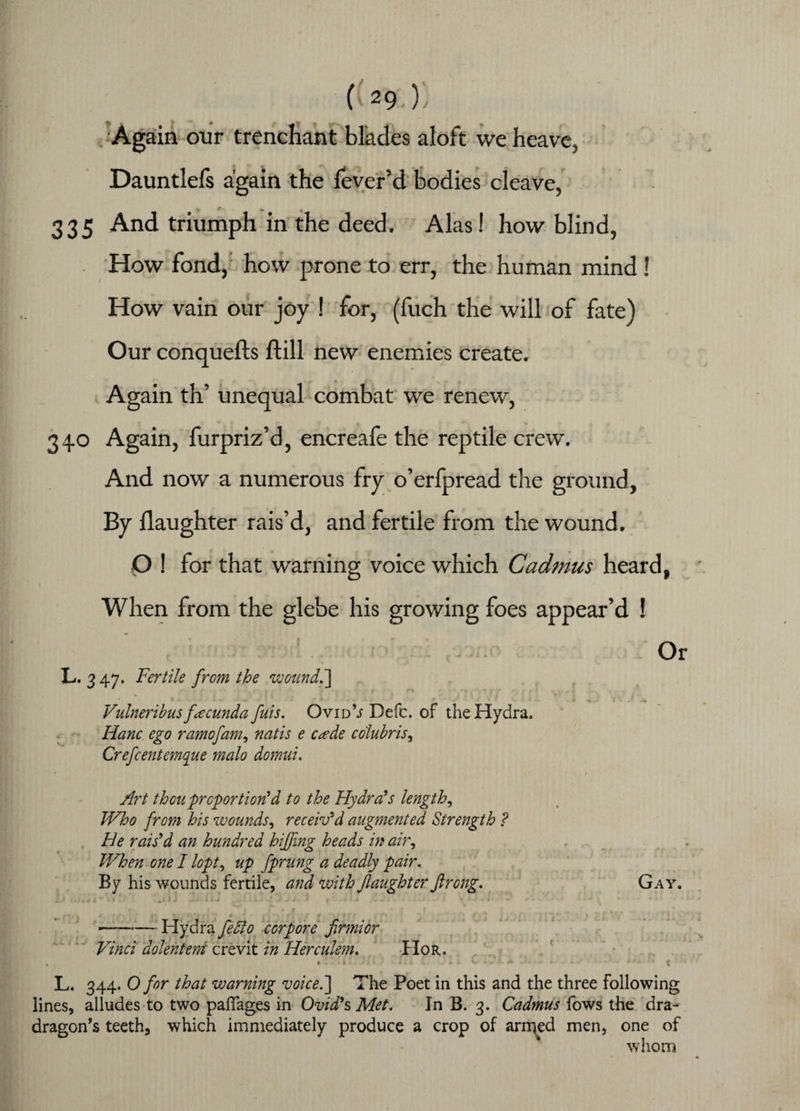 ( 29 )
Again our trenchant blades aloft we heave,
Dauntlefs again the fever'd bodies cleave,
335 And triumph in the deed. Alas! how blind,
How fond, how prone to err, the human mind!
How vain our joy ! for, (fuch the will of fate)
Our conquefts ftill new enemies create.
Again th' unequal combat we renew,
340 Again, furpriz'd, encreafe the reptile crew.
And now a numerous fry o'erfpread the ground,
By flaughter rais'd, and fertile from the wound.
O ! for that warning voice which Cadmus heard,
When from the glebe his growing foes appear'd !
Or
L. 347. Fertile from the wound.]
Vulneribus fæcunda fuis. OVID's Defc. of the Hydra.
Hanc ego ramofam, natis e cæde colubris,
Crefcentemque malo domui.
Art thou proportion'd to the Hydra's length,
Who from his wounds, receiv'd augmented Strength ?
He rais'd an hundred hiffing heads in air,
When one I lopt, up fprung a deadly pair.
By his wounds fertile, and with flaughter ftrong. GAY.
——Hydra fecto corpore firmior
Vinci dolentem crevit in Herculem. HOR.
L. 344. O for that warning voice.] The Poet in this and the three following
lines, alludes to two paffages in Ovid's Met. In B. 3. Cadmus fows the dra-
dragon's teeth, which immediately produce a crop of armed men, one of
whom